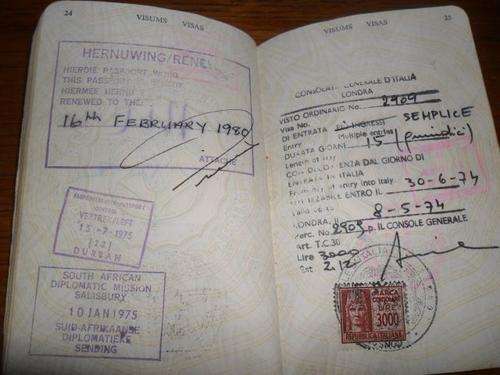 24 VISUMS VISAS
HERNUWING/RENE
HIERDIE PASPOORT WORD
THIS PASSPORT
HIERMEE HERNU
RENEWED TO THE
16th FEBRUARY 1980
ATTACHE
VERTREK/LEFT
15-7-1975
(22)
DURBAN
SOUTH AFRICAN
DIPLOMATIC MISSION
SALISBURY
10 JAN 1975
SUID-AFRIKAANSE
DIPLOMATIEKE
SENDING
VISUMS VISAS 25
CONSOLATO GENERALE D'ITALIA
LONDRA
VISTO ORDINARIO No. 2909
Visa No.
DI ENTRATA INGRESSI SEMPLICE
Entry Multiple entries
DURATA GIORNI 15 (quindici)
Length of
CON DECORRENZA DAL GIORNO DI
ENTRATA IN ITALIA
From day of Entry into Italy
UTILIZZABILE ENTRO IL 30-6-74
LONDRA, IL 8-5-74
Perc. No. 2909 p. IL CONSOLE GENERALE
art. T.C. 30
Lire 3000
Sst 2.12
MARCA
CONSOLARE
LIRE
3000
REPUBBLICA ITALIANA